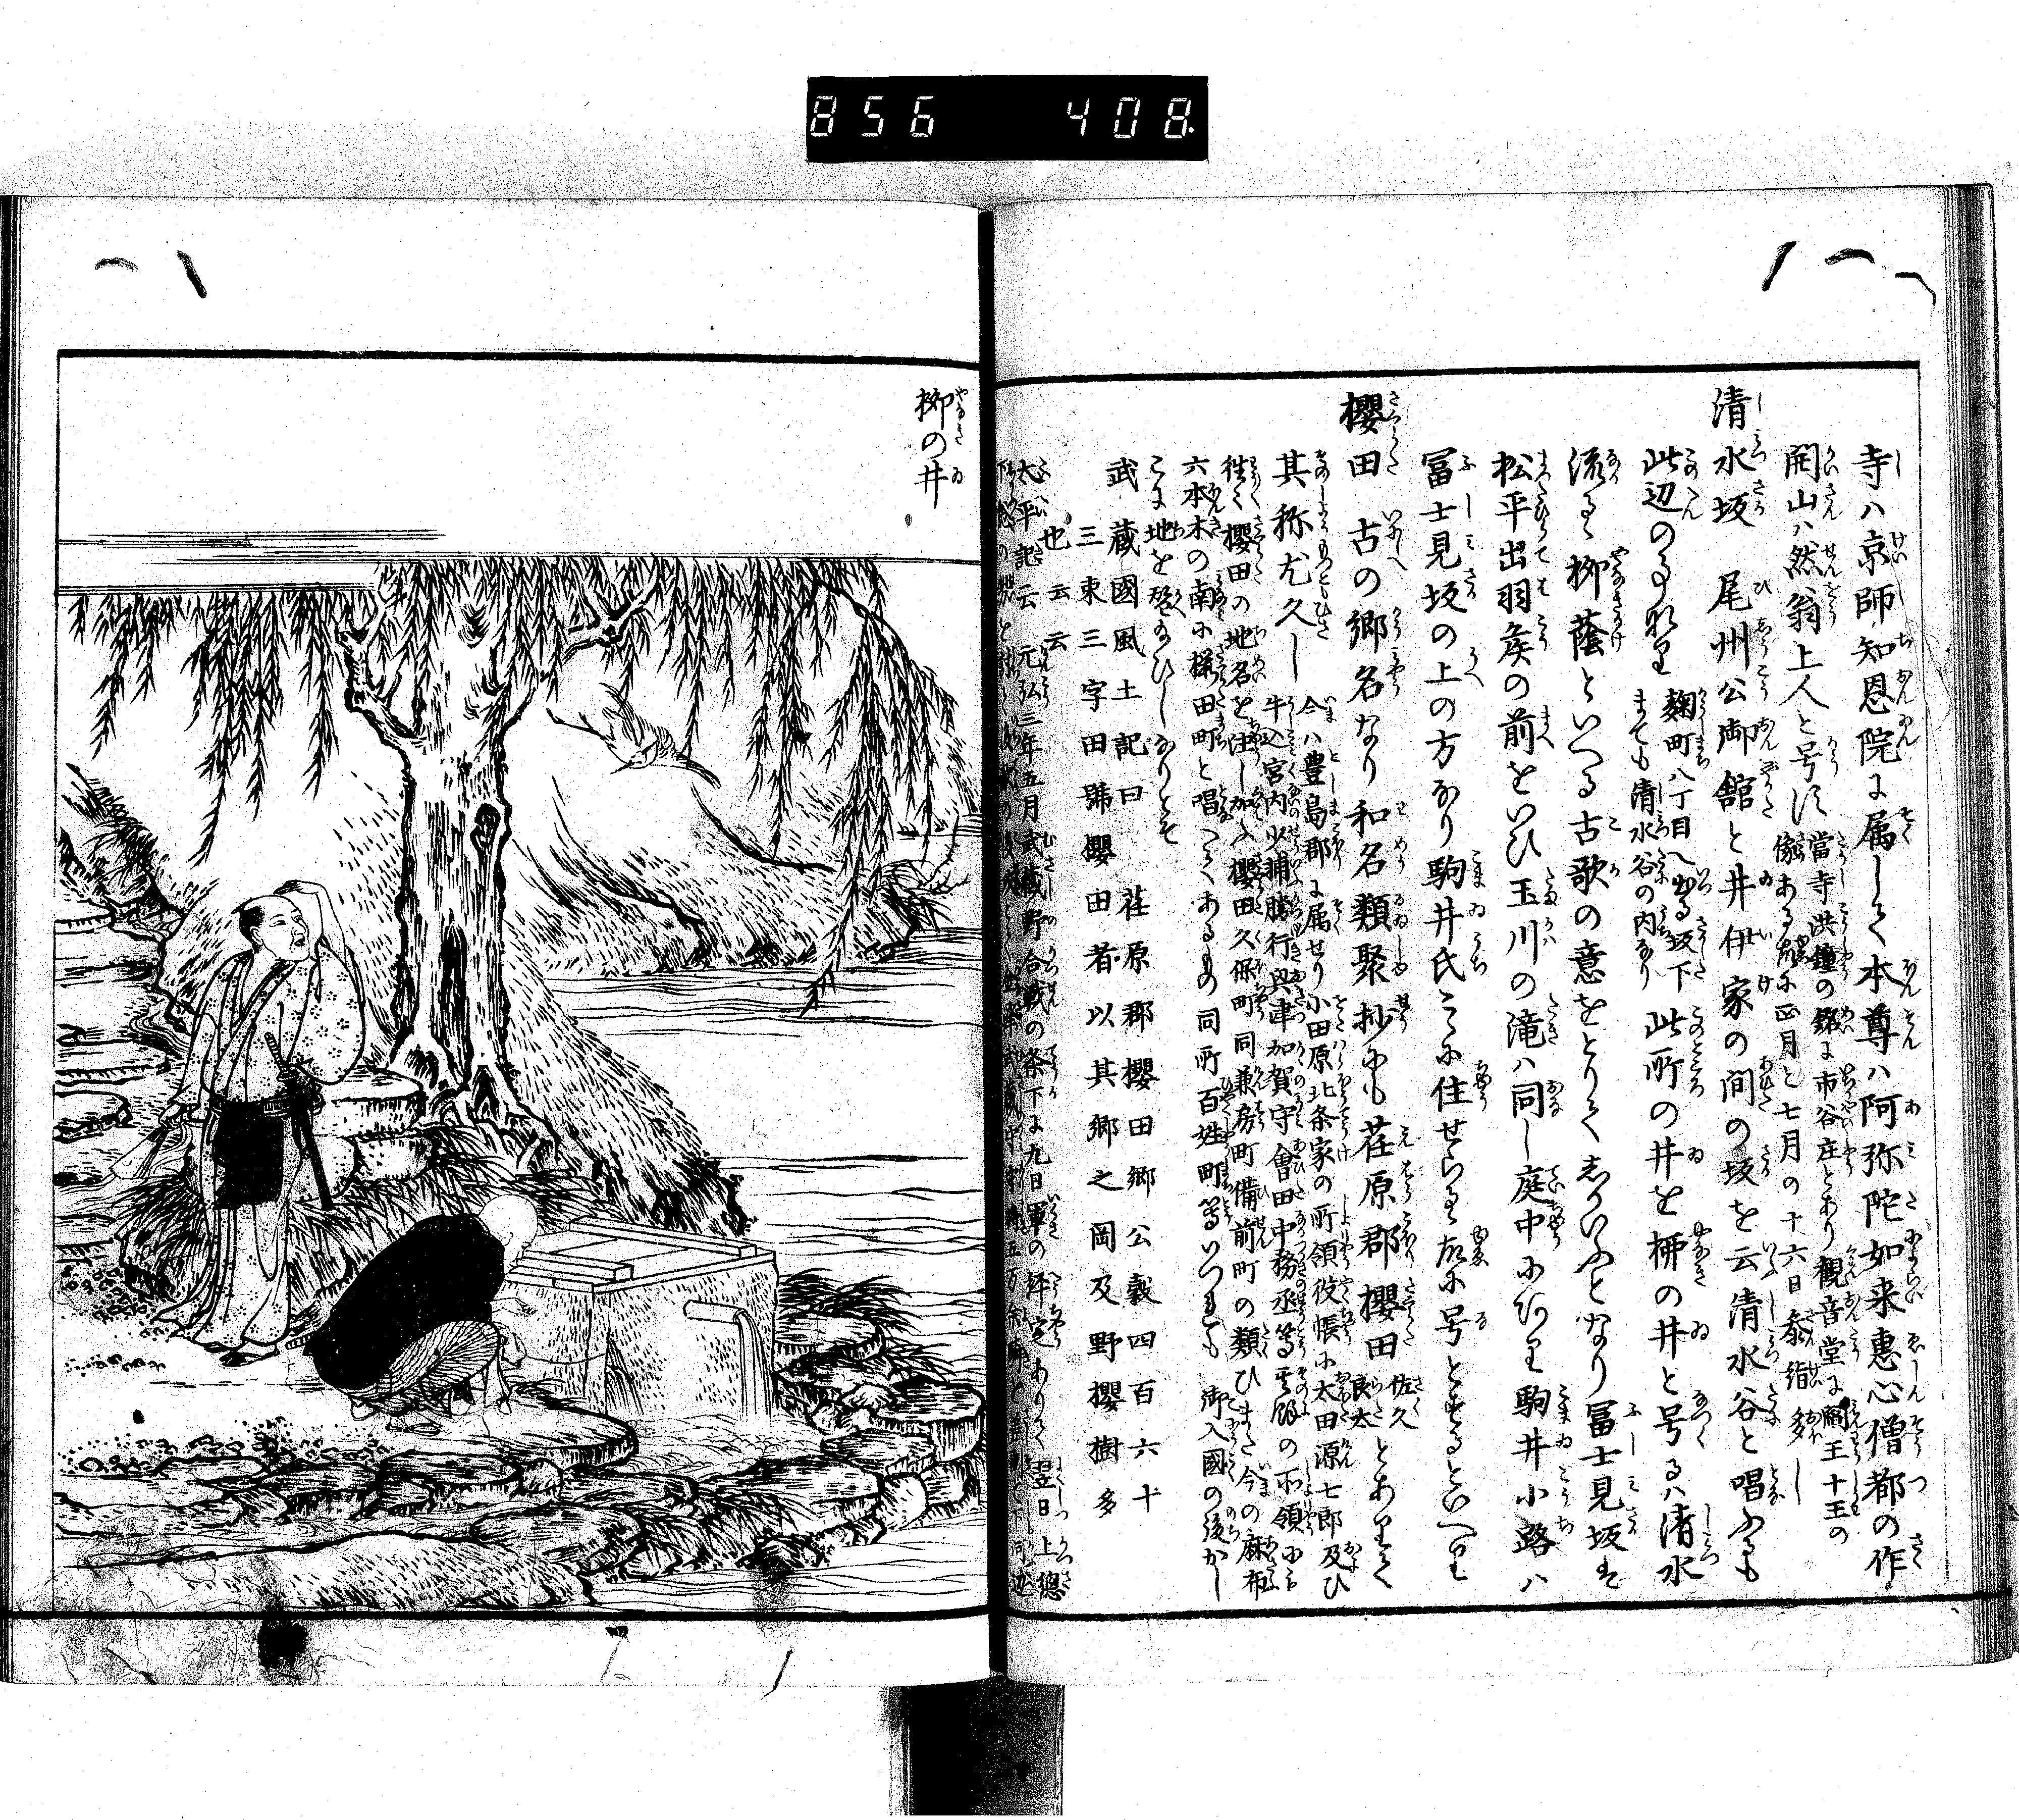 856 408
寺ハ京師知恩院に属して本尊ハ阿弥陀如来恵心僧都の作
開山ハ然翁上人と号す 當寺洪鐘の銘に市谷庄とあり観音堂に閻王十王の
像ある故に正月と七月の十六日参詣多し
清水坂 尾州公御舘と井伊家の間の坂を云清水谷と唱ふるも
此辺の事なり 麹町八丁目へ出る坂下
まても清水谷の内なり 此所の井を柳の井と号るハ清水
流るゝ柳蔭といへる古歌の意をとりてしかいふとなり冨士見坂は
松平出羽矦の前をいひ玉川の滝ハ同し庭中にあり駒井小路ハ
冨士見坂の上の方なり駒井氏こゝに住せられ故に号とするといへり
櫻田 古の郷名なり和名類聚抄にも荏原郡櫻田 佐久
良太 とありて
其称尤久し 今ハ豊島郡に属せり小田原北条家の所領役帳に太田源七郎及ひ
牛込宮内少輔勝行興津加賀守會田中務丞等の所領にも
徃々櫻田の地名を注し加ふ櫻田久保町同兼房町備前町の類ひまた今の麻布
六本木の南に櫻田町と唱へてあるもの同所百姓町等いつれも 御入國の後かし
こに地を移給ひしなりとそ
武蔵國風土記曰 荏原郡櫻田郷公穀四百六十
三束三字田號櫻田者以其郷之岡及野櫻樹多
也云云
太平記云 元弘三年五月武蔵野合戦の条下に九日軍の評定ありて 翌日 上總
柳の井